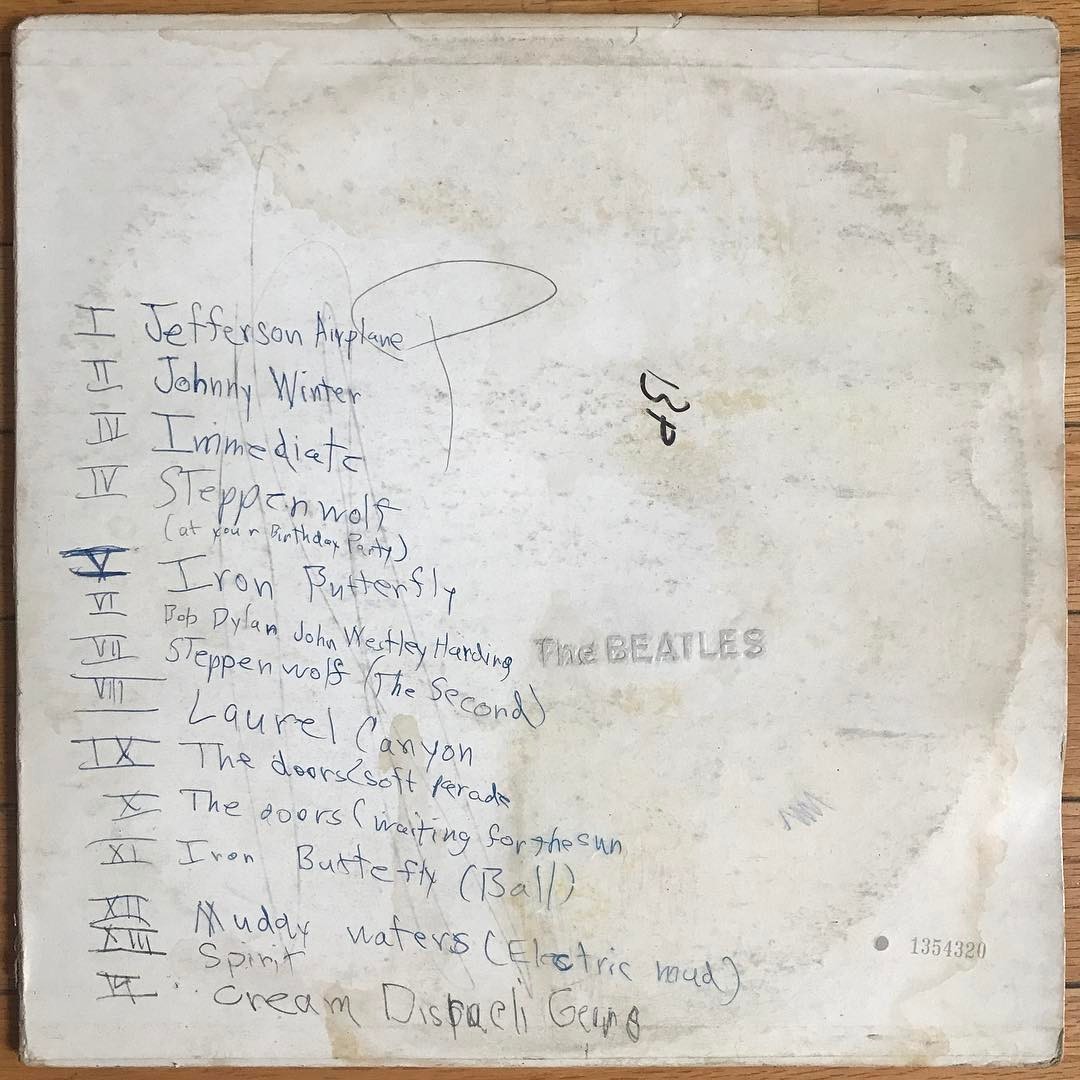 I Jefferson Airplane
II Johnny Winter
III Immediate
IV STeppenwolf
(at your Birthday Party)
V Iron Butterfly
VI Bob Dylan John Westley Harding
The BEATLES
VII STeppenwolf (The Second)
VIII Laurel Canyon
IX The doors (soft parade
X The doors (waiting for the sun
XI Iron Buttefly (Ball)
XII Muddy waters (Electric mud)
XIII Spirit
1354320
Cream